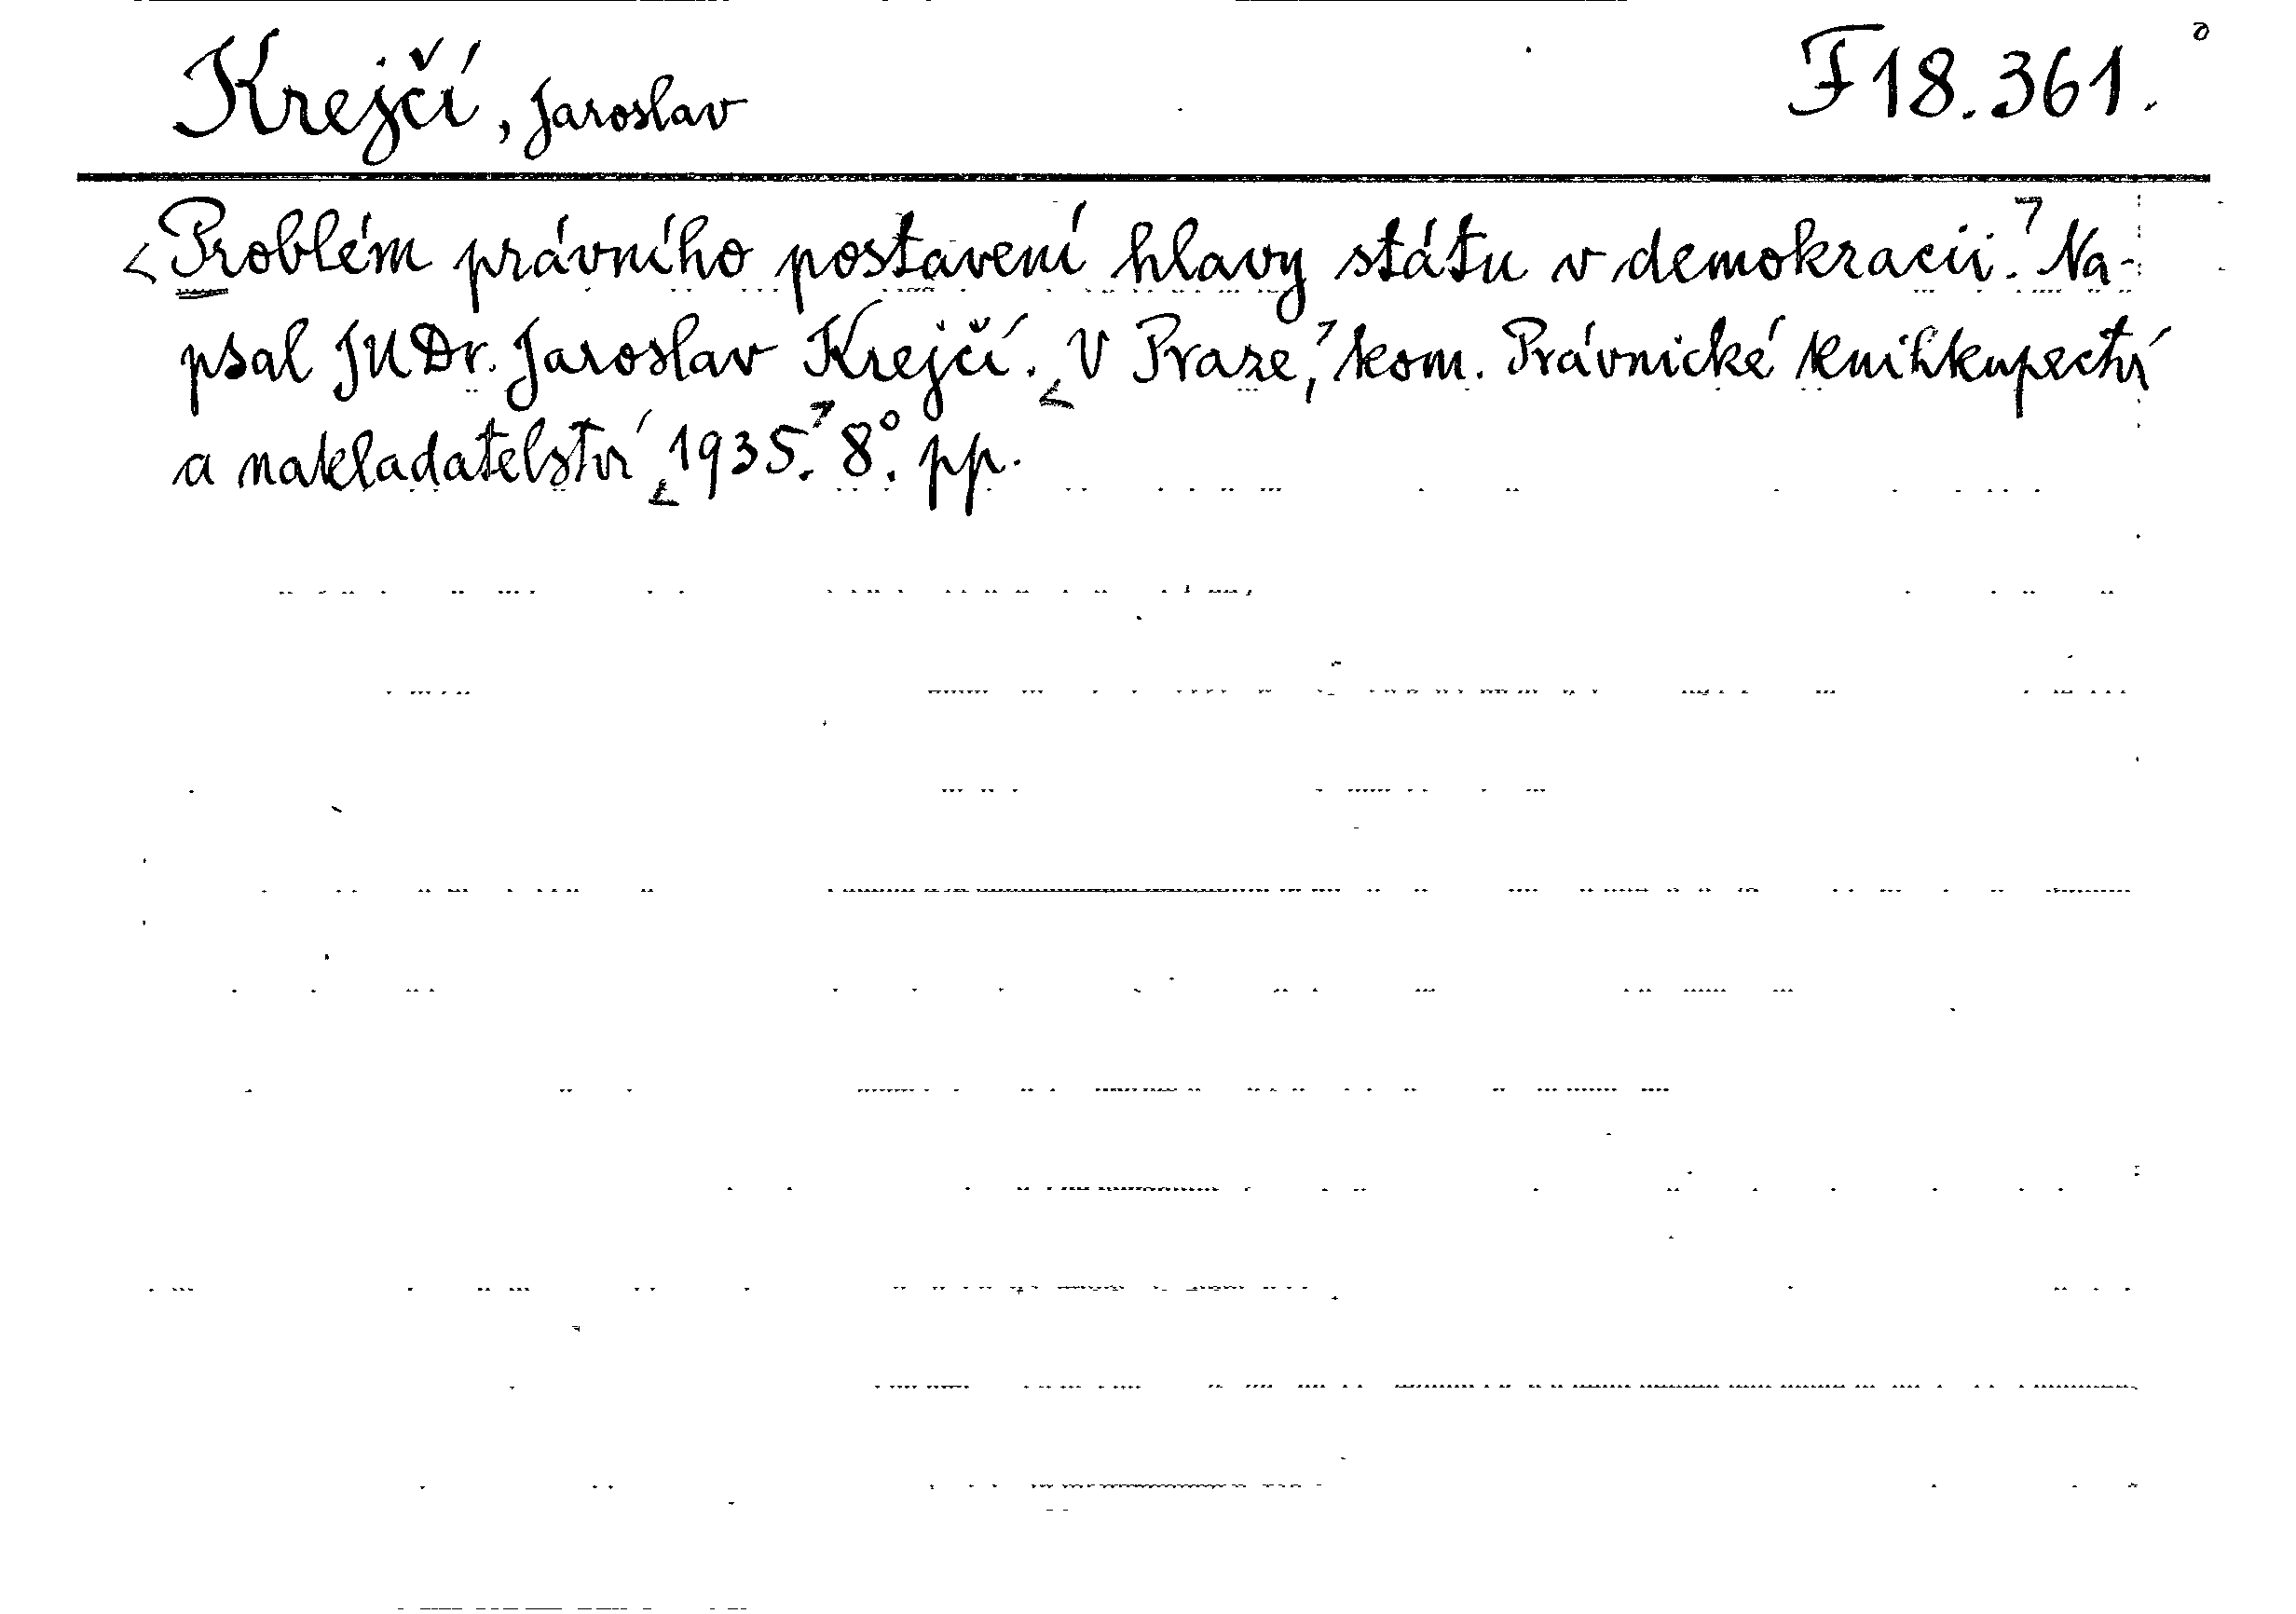 Krejčí, Jaroslav F 18.361.
Problém právního postavení hlavy státu v demokracii. Na-
psal JUDr. Jaroslav Krejčí. V Praze, kom. Právnické knihkupectví
a nakladatelství 1935. 8°. pp.